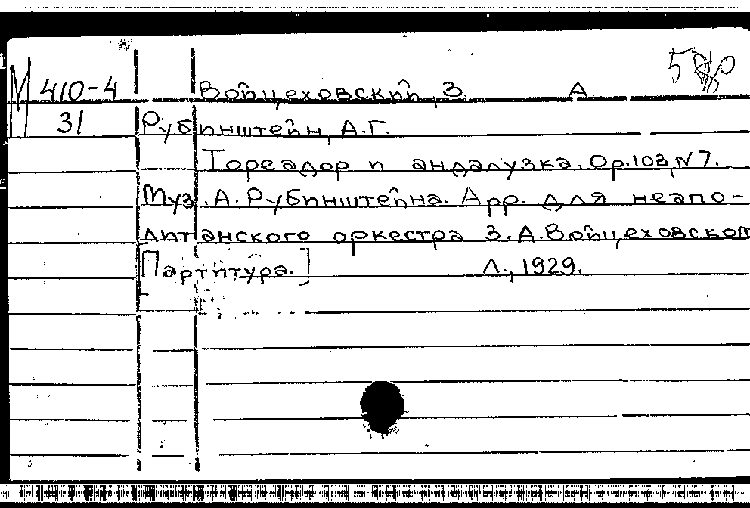 М 410-4 Войцеховский, З. А
31 Рубинштейн, А.Г.
Тореадор и андалузка. Op.103, N7.
Муз. А. Рубинштейна. Арр. для неапо-
литанского оркестра З. А. Войцеховского
[Партитура.] Л., 1929.